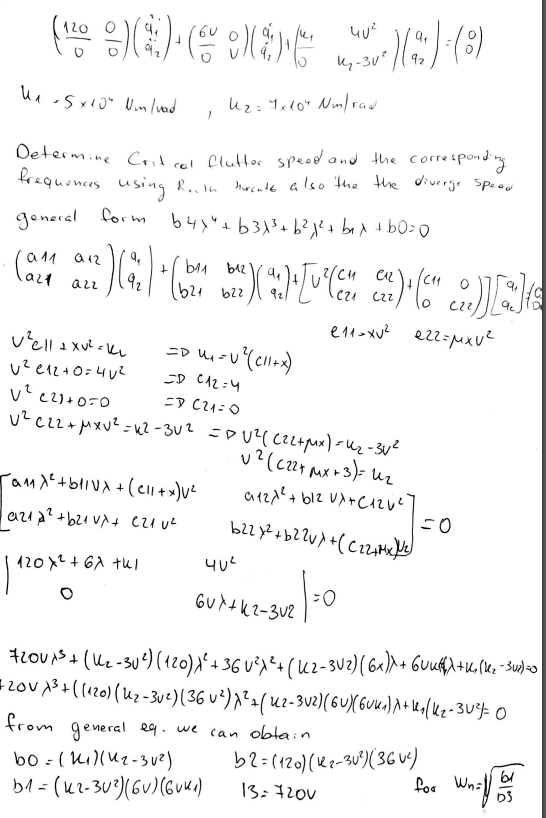 (120 0 / 0 0)(q̈1 / q̈2) + (6V 0 / 0 V)(q̇1 / q̇2) + (k1 4V² / 0 k2-3V²)(q1 / q2) = (0 / 0)
k1 = 5×10⁴ Nm/rad , k2 = 7×10⁴ Nm/rad
Determine Critical flutter speed and the corresponding
frequences using also the the diverge speed
general form b4λ⁴ + b3λ³ + b2λ² + b1λ + b0 = 0
(a11 a12 / a21 a22)(q1 / q2) + (b11 b12 / b21 b22)(q1 / q2) + [V²(c11 c12 / c21 c22) + (e11 0 / 0 e22)][q1 / q2] =
e11 = xV² e22 = μxV²
V²c11 + xV² = k1 => k1 = V²(c11+x)
V²c12 + 0 = 4V² => c12 = 4
V²c21 + 0 = 0 => c21 = 0
V²c22 + μxV² = k2-3V² => V²(c22+μx) = k2-3V²
V²(c22+μx+3) = k2
[a11λ² + b11Vλ + (c11+x)V² a12λ² + b12Vλ + c12V²
a21λ² + b21Vλ + c21V² b22λ² + b22Vλ + (c22+μx)V²] = 0
|120λ² + 6λ + k1 4V²
0 6Vλ + k2-3V2| = 0
720Vλ³ + (k2-3V²)(120)λ² + 36V²λ² + (k2-3V2)(6x)λ + 6Vk1λ + k1(k2-3V²)=0
+20Vλ³ + ((120)(k2-3V²)(36V²)λ² + (k2-3V2)(6V)(6Vk1)λ + k1(k2-3V²) = 0
from general eq. we can obtain
b0 = (k1)(k2-3V²) b2 = (120)(k2-3V²)(36V²)
b1 = (k2-3V²)(6V)(6Vk1) 13 = 720V for Wn = √(b1/b3)